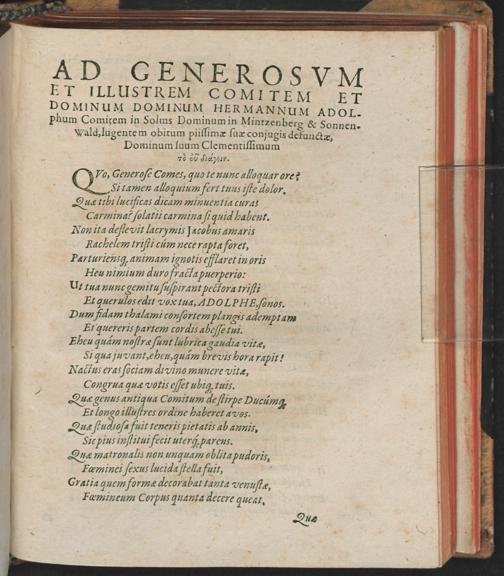 AD GENEROSVM
ET ILLUSTREM COMITEM ET
DOMINUM DOMINUM HERMANNUM ADOL-
phum Comitem in Solms Dominum in Mintzenberg & Sonnen-
Wald, lugentem obitum piissimæ suæ conjugis defunctæ,
Dominum suum Clementissimum
τὸ εὖ διάγειν.
QVo, Generose Comes, quo te nunc alloquar ore?
Si tamen alloquium fert tuus iste dolor.
Quæ tibi lucificas dicam minuentia curas
Carmina? solatii carmina si quid habent.
Non ita deflevit lacrymis Jacobus amaris
Rachelem tristi cùm nece rapta foret,
Parturiensq́ animam ignotis efflaret in oris
Heu nimium duro fracta puerperio:
Ut tua nunc gemitu suspirant pectora tristi
Et querulos edit vox tua, ADOLPHE, sonos.
Dum fidam thalami consortem plangis ademptam
Et quereris partem cordis abesse tui.
Eheu quàm nostræ sunt lubrica gaudia vitæ,
Si qua juvant, eheu, quàm brevis hora rapit!
Nactus eras sociam divino munere vitæ,
Congrua quæ votis esset ubiq́ tuis.
Quæ genus antiqua Comitum de stirpe Ducúmq́,
Et longo illustres ordine haberet avos.
Quæ studiosa fuit teneris pietatis ab annis,
Sic pius institui fecit uterq́, parens.
Quæ matronalis non unquam oblita pudoris,
Fœminei sexus lucida stella fuit,
Gratia quem formæ decorabat tanta venustæ,
Fœmineum Corpus quanta decere queat.
Quæ